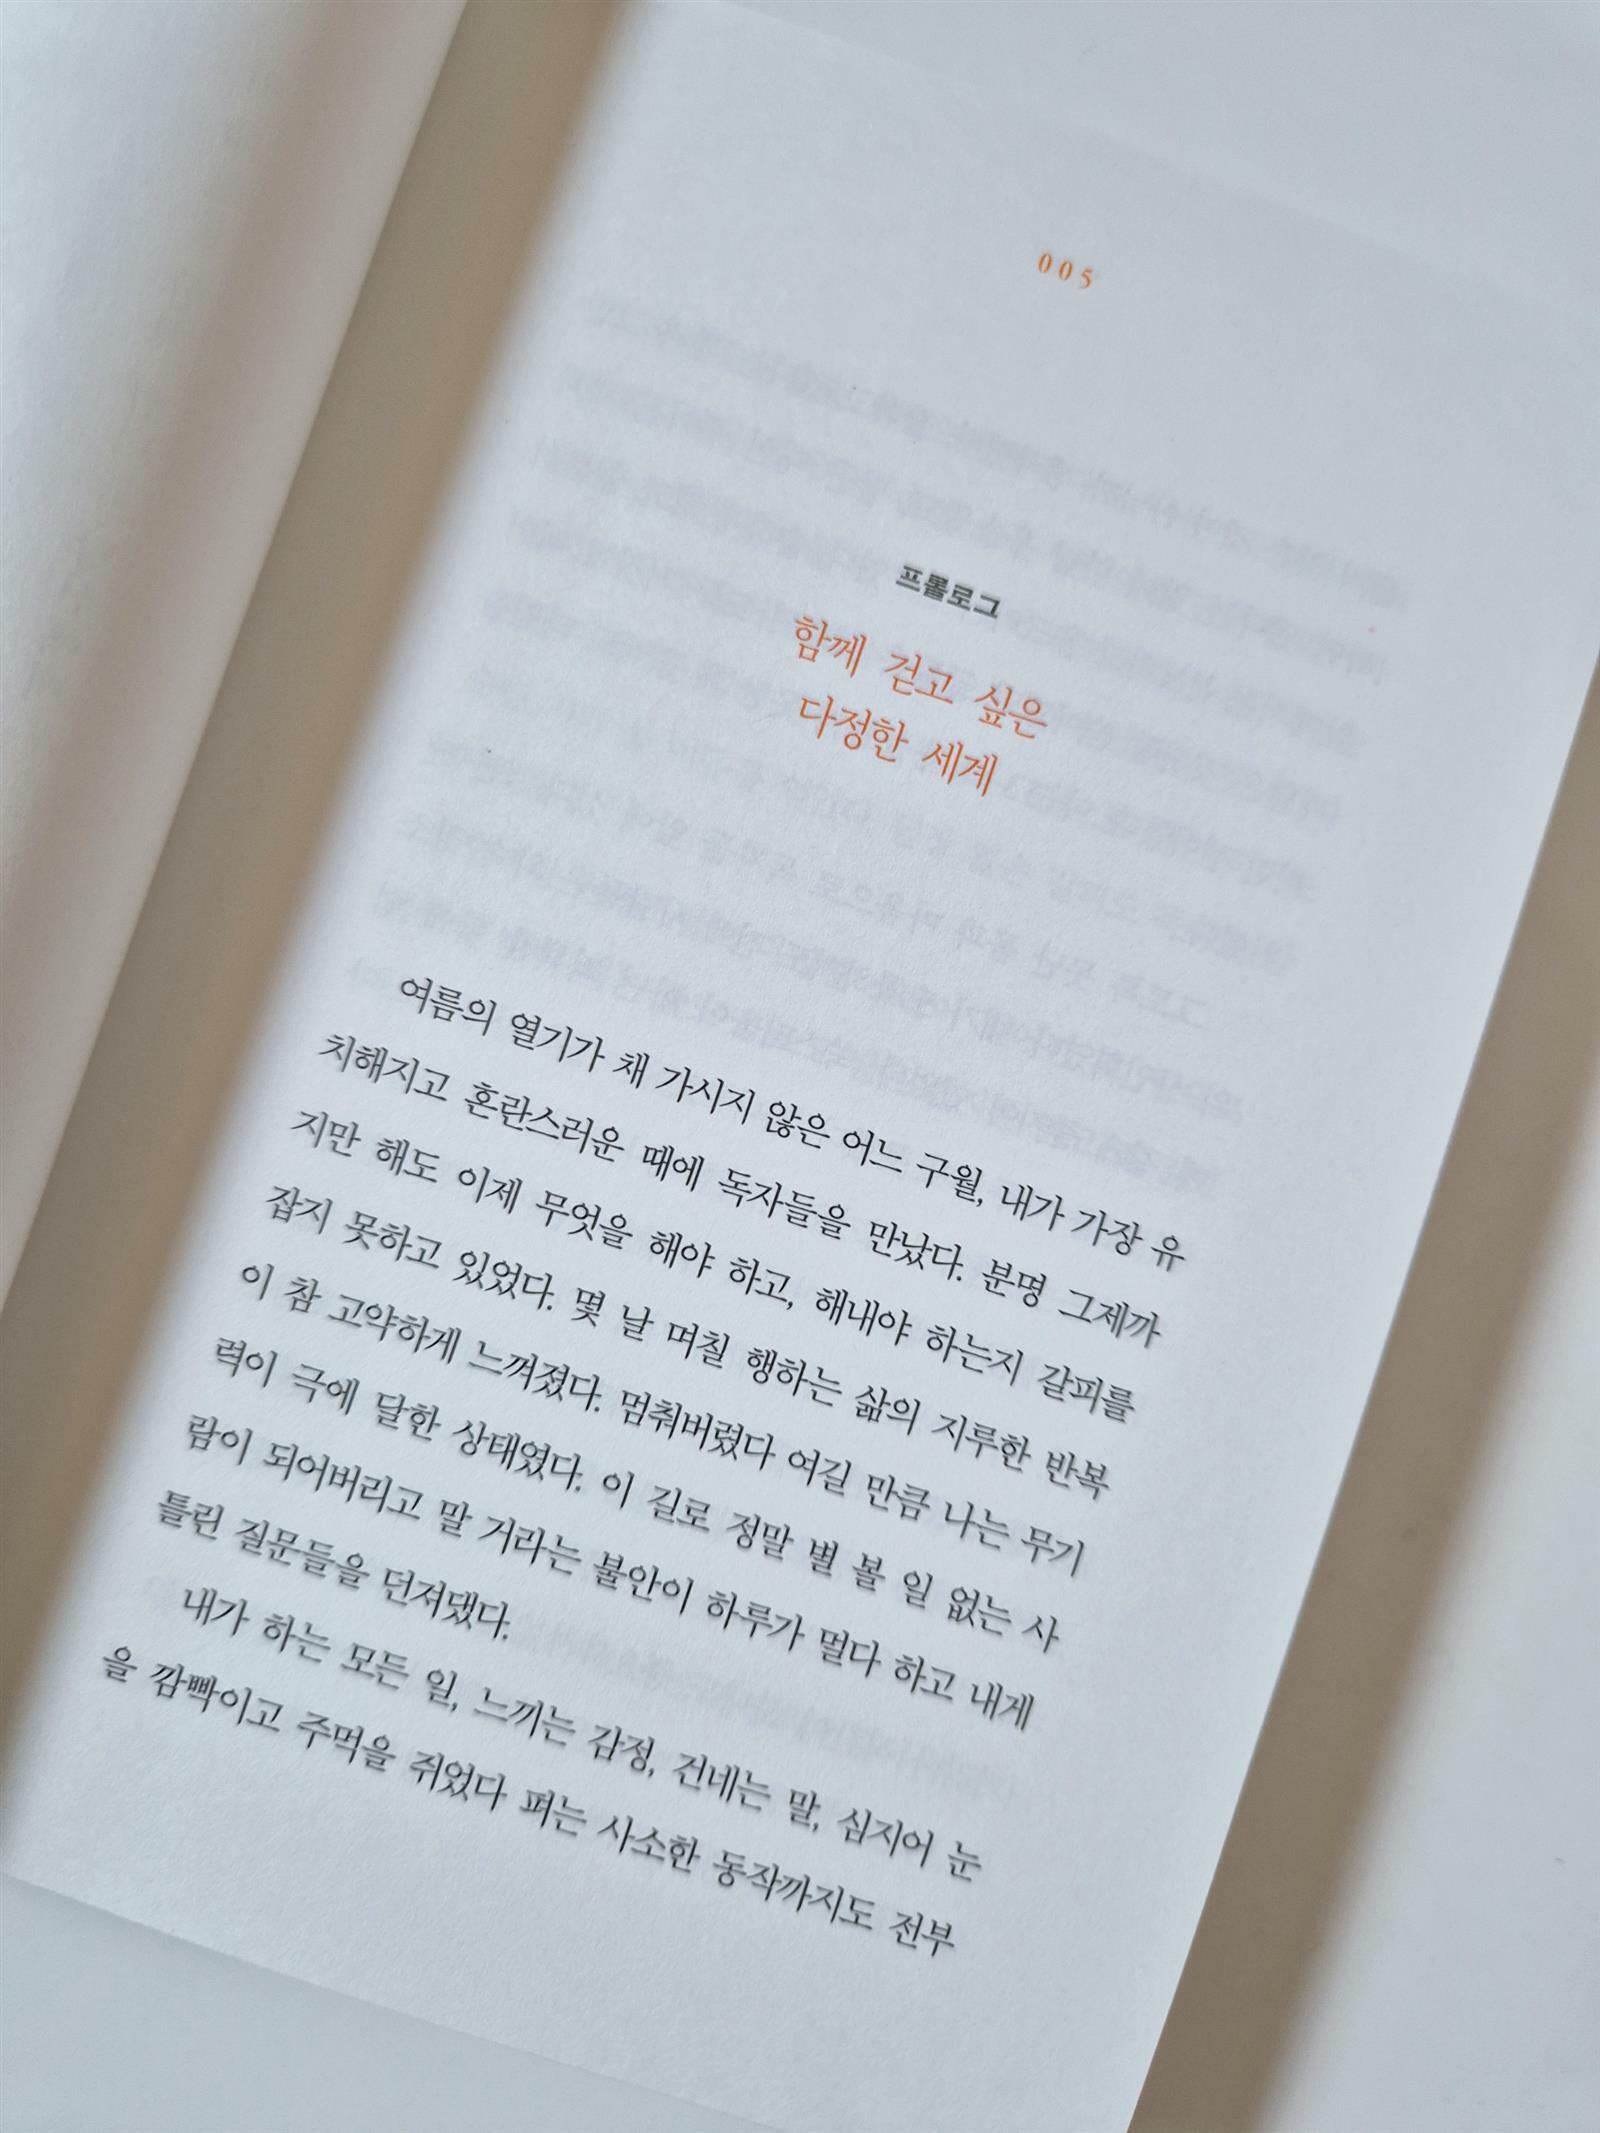 005
프롤로그
함께 걷고 싶은
다정한 세계
여름의 열기가 채 가시지 않은 어느 구월, 내가 가장 유
치해지고 혼란스러운 때에 독자들을 만났다. 분명 그제까
지만 해도 이제 무엇을 해야 하고, 해내야 하는지 갈피를
잡지 못하고 있었다. 몇 날 며칠 행하는 삶의 지루한 반복
이 참 고약하게 느껴졌다. 멈춰버렸다 여길 만큼 나는 무기
력이 극에 달한 상태였다. 이 길로 정말 별 볼 일 없는 사
람이 되어버리고 말 거라는 불안이 하루가 멀다 하고 내게
틀린 질문들을 던져댔다.
내가 하는 모든 일, 느끼는 감정, 건네는 말, 심지어 눈
을 깜빡이고 주먹을 쥐었다 펴는 사소한 동작까지도 전부